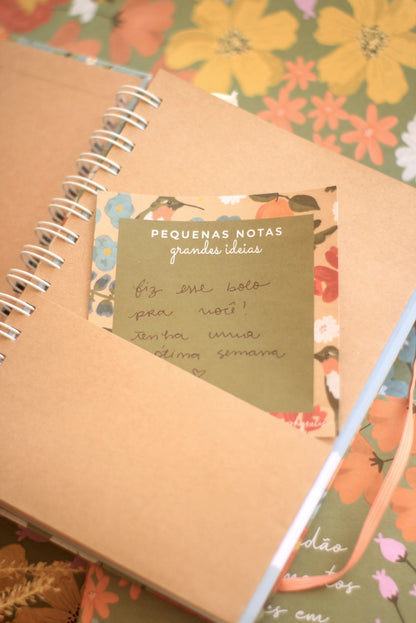 PEQUENAS NOTAS
grandes ideias
fiz esse bolo
pra você!
tenha uma
ótima semana
♡